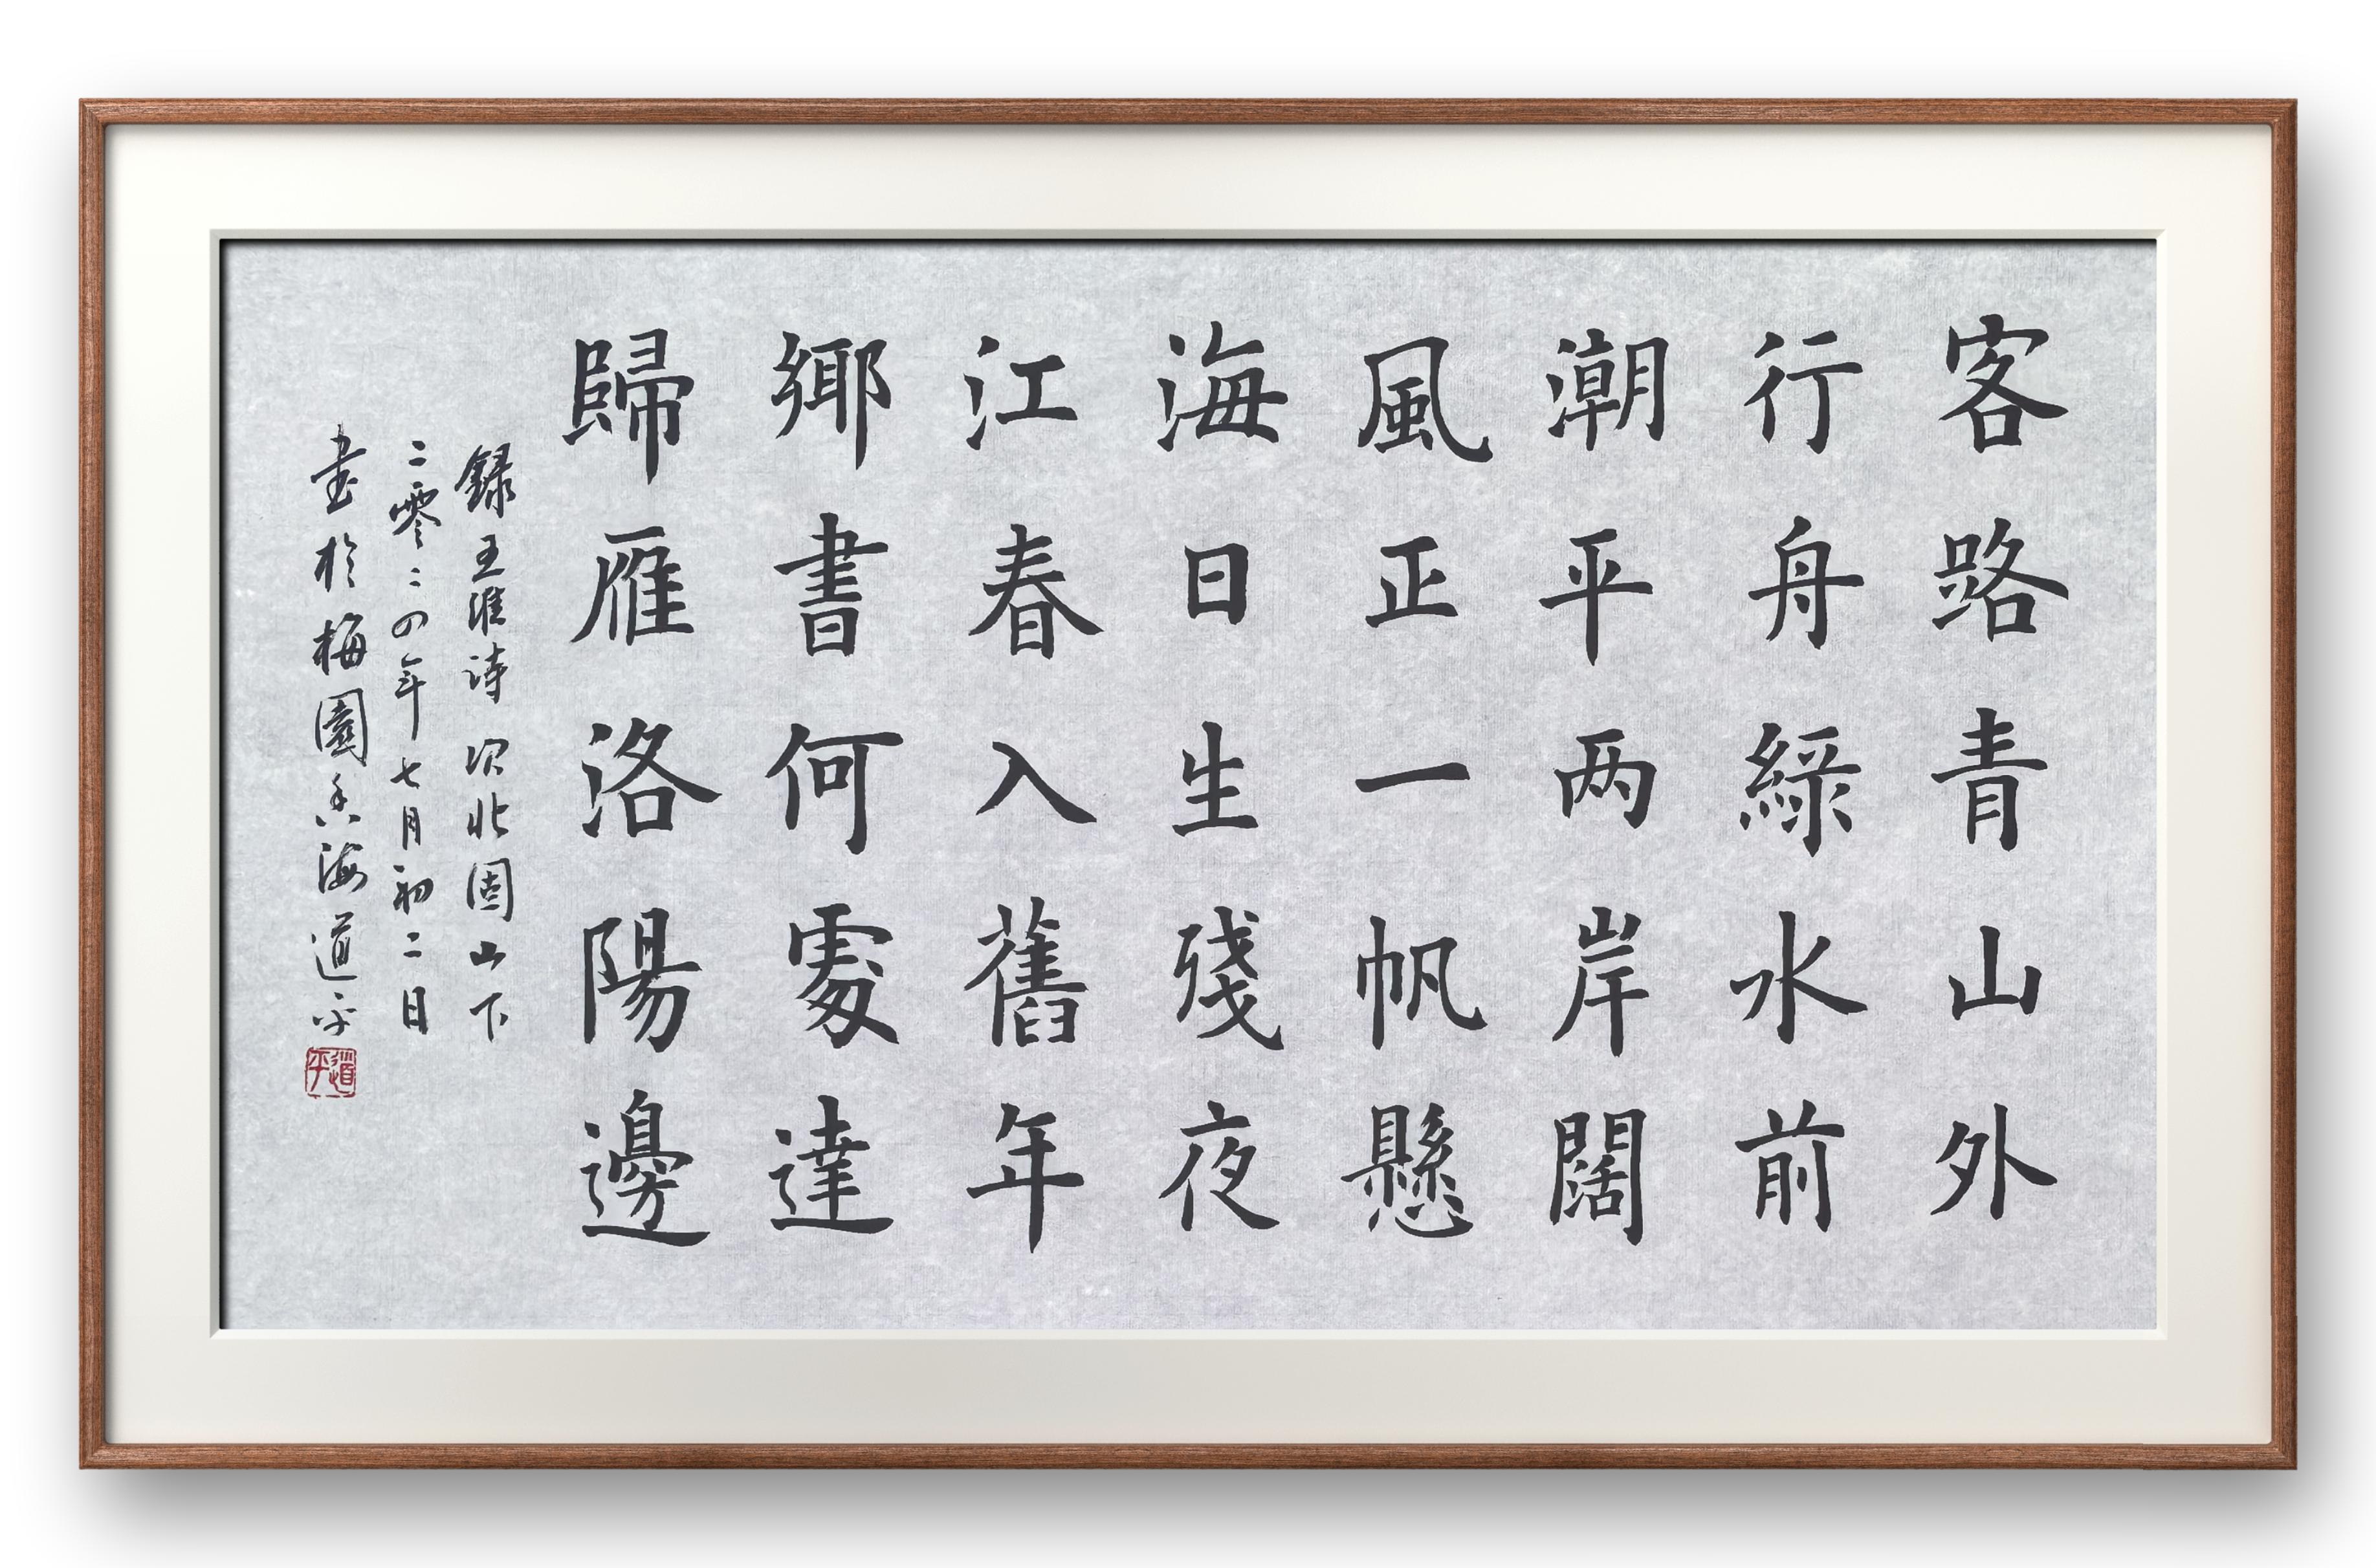 客路青山外
行舟綠水前
潮平两岸闊
風正一帆懸
海日生殘夜
江春入舊年
鄉書何處達
歸雁洛陽邊
録王維詩次北固山下
二零二四年七月初二日
書於梅園香海道平
道平